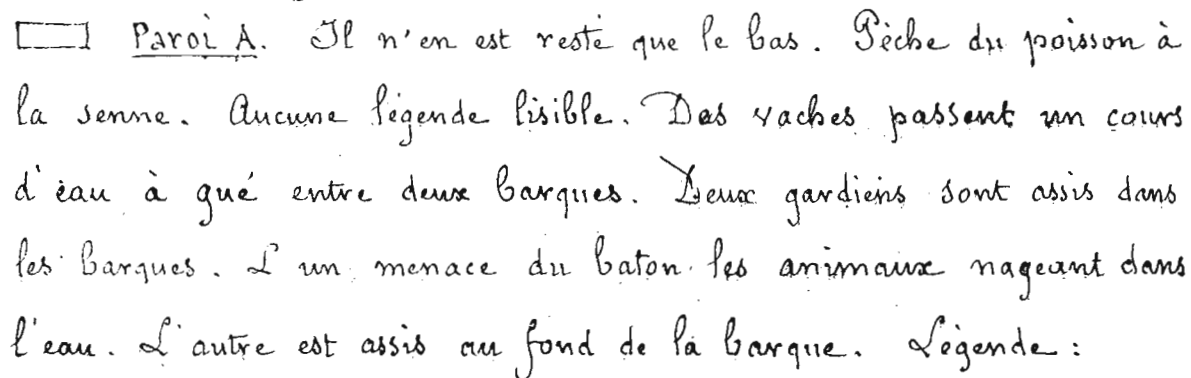 Paroi A. Il n'en est resté que le bas. Pêche du poisson à
la senne. Aucune légende lisible. Des vaches passent un cours
d'eau à gué entre deux barques. Deux gardiens sont assis dans
les barques. L'un menace du baton les animaux nageant dans
l'eau. L'autre est assis au fond de la barque. Légende :